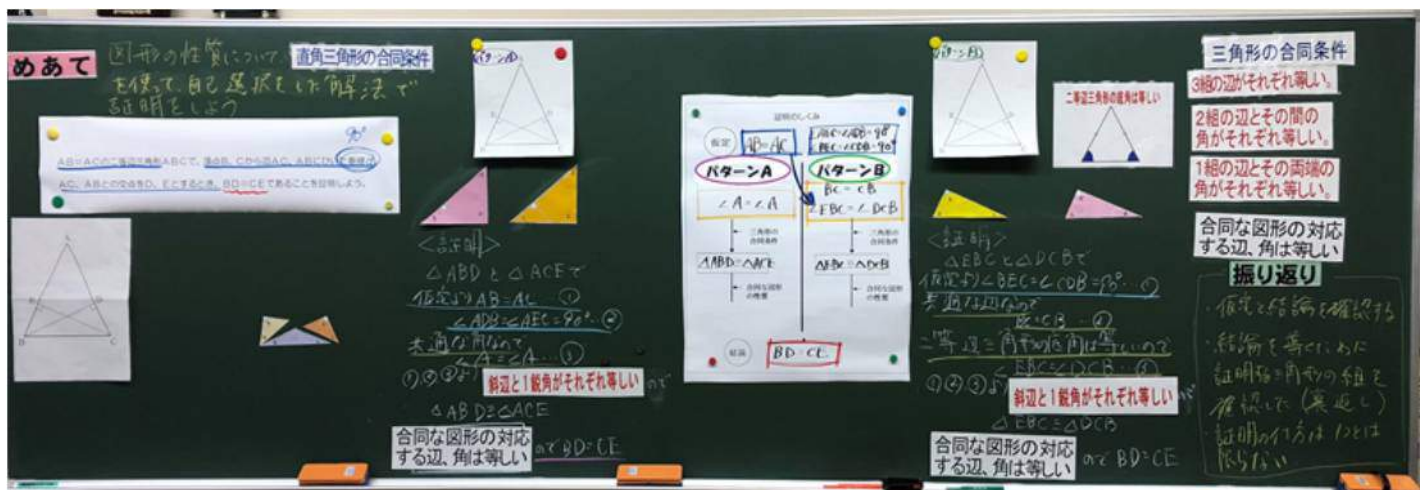 めあて
図形の性質について 直角三角形の合同条件
を使って、自己選択をした解法で
証明をしよう
90°
AB=ACの二等辺三角形ABCで、頂点B、Cから辺AC、ABにひいた垂線と
AC、ABとの交点をD、Eとするとき、BD=CEであることを証明しよう。
A
E
D
B
C
パターンA
<証明>
△ABDと△ACEで
仮定よりAB=AC…①
∠ADB=∠AEC=90°…②
共通な角なので
∠A=∠A…③
①,②,③より 斜辺と1鋭角がそれぞれ等しい ので
△ABD≡△ACE
合同な図形の対応
する辺、角は等しい のでBD=CE
証明のしくみ
仮定
AB=AC
∠BEC=∠CDB=90°
パターンA
∠A=∠A
三角形の
合同条件
△ABD≡△ACE
合同な図形
の性質
パターンB
BC=CB
∠EBC=∠DCB
三角形の
合同条件
△EBC≡△DCB
合同な図形
の性質
結論
BD=CE
パターンB
二等辺三角形の底角は等しい
<証明>
△EBCと△DCBで
仮定より∠BEC=∠CDB=90°…①
共通な辺なので
BC=CB…②
二等辺三角形の底角は等しいので
∠EBC=∠DCB…③
①,②,③より 斜辺と1鋭角がそれぞれ等しい ので
△EBC≡△DCB
合同な図形の対応
する辺、角は等しい のでBD=CE
三角形の合同条件
3組の辺がそれぞれ等しい。
2組の辺とその間の
角がそれぞれ等しい。
1組の辺とその両端の
角がそれぞれ等しい。
合同な図形の対応
する辺、角は等しい
振り返り
・仮定と結論を確認する
・結論を導くために
証明する三角形の組を
確認した(裏返し)
・証明の仕方は1つとは
限らない